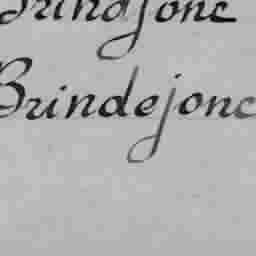 Brindjonc
Brindejonc